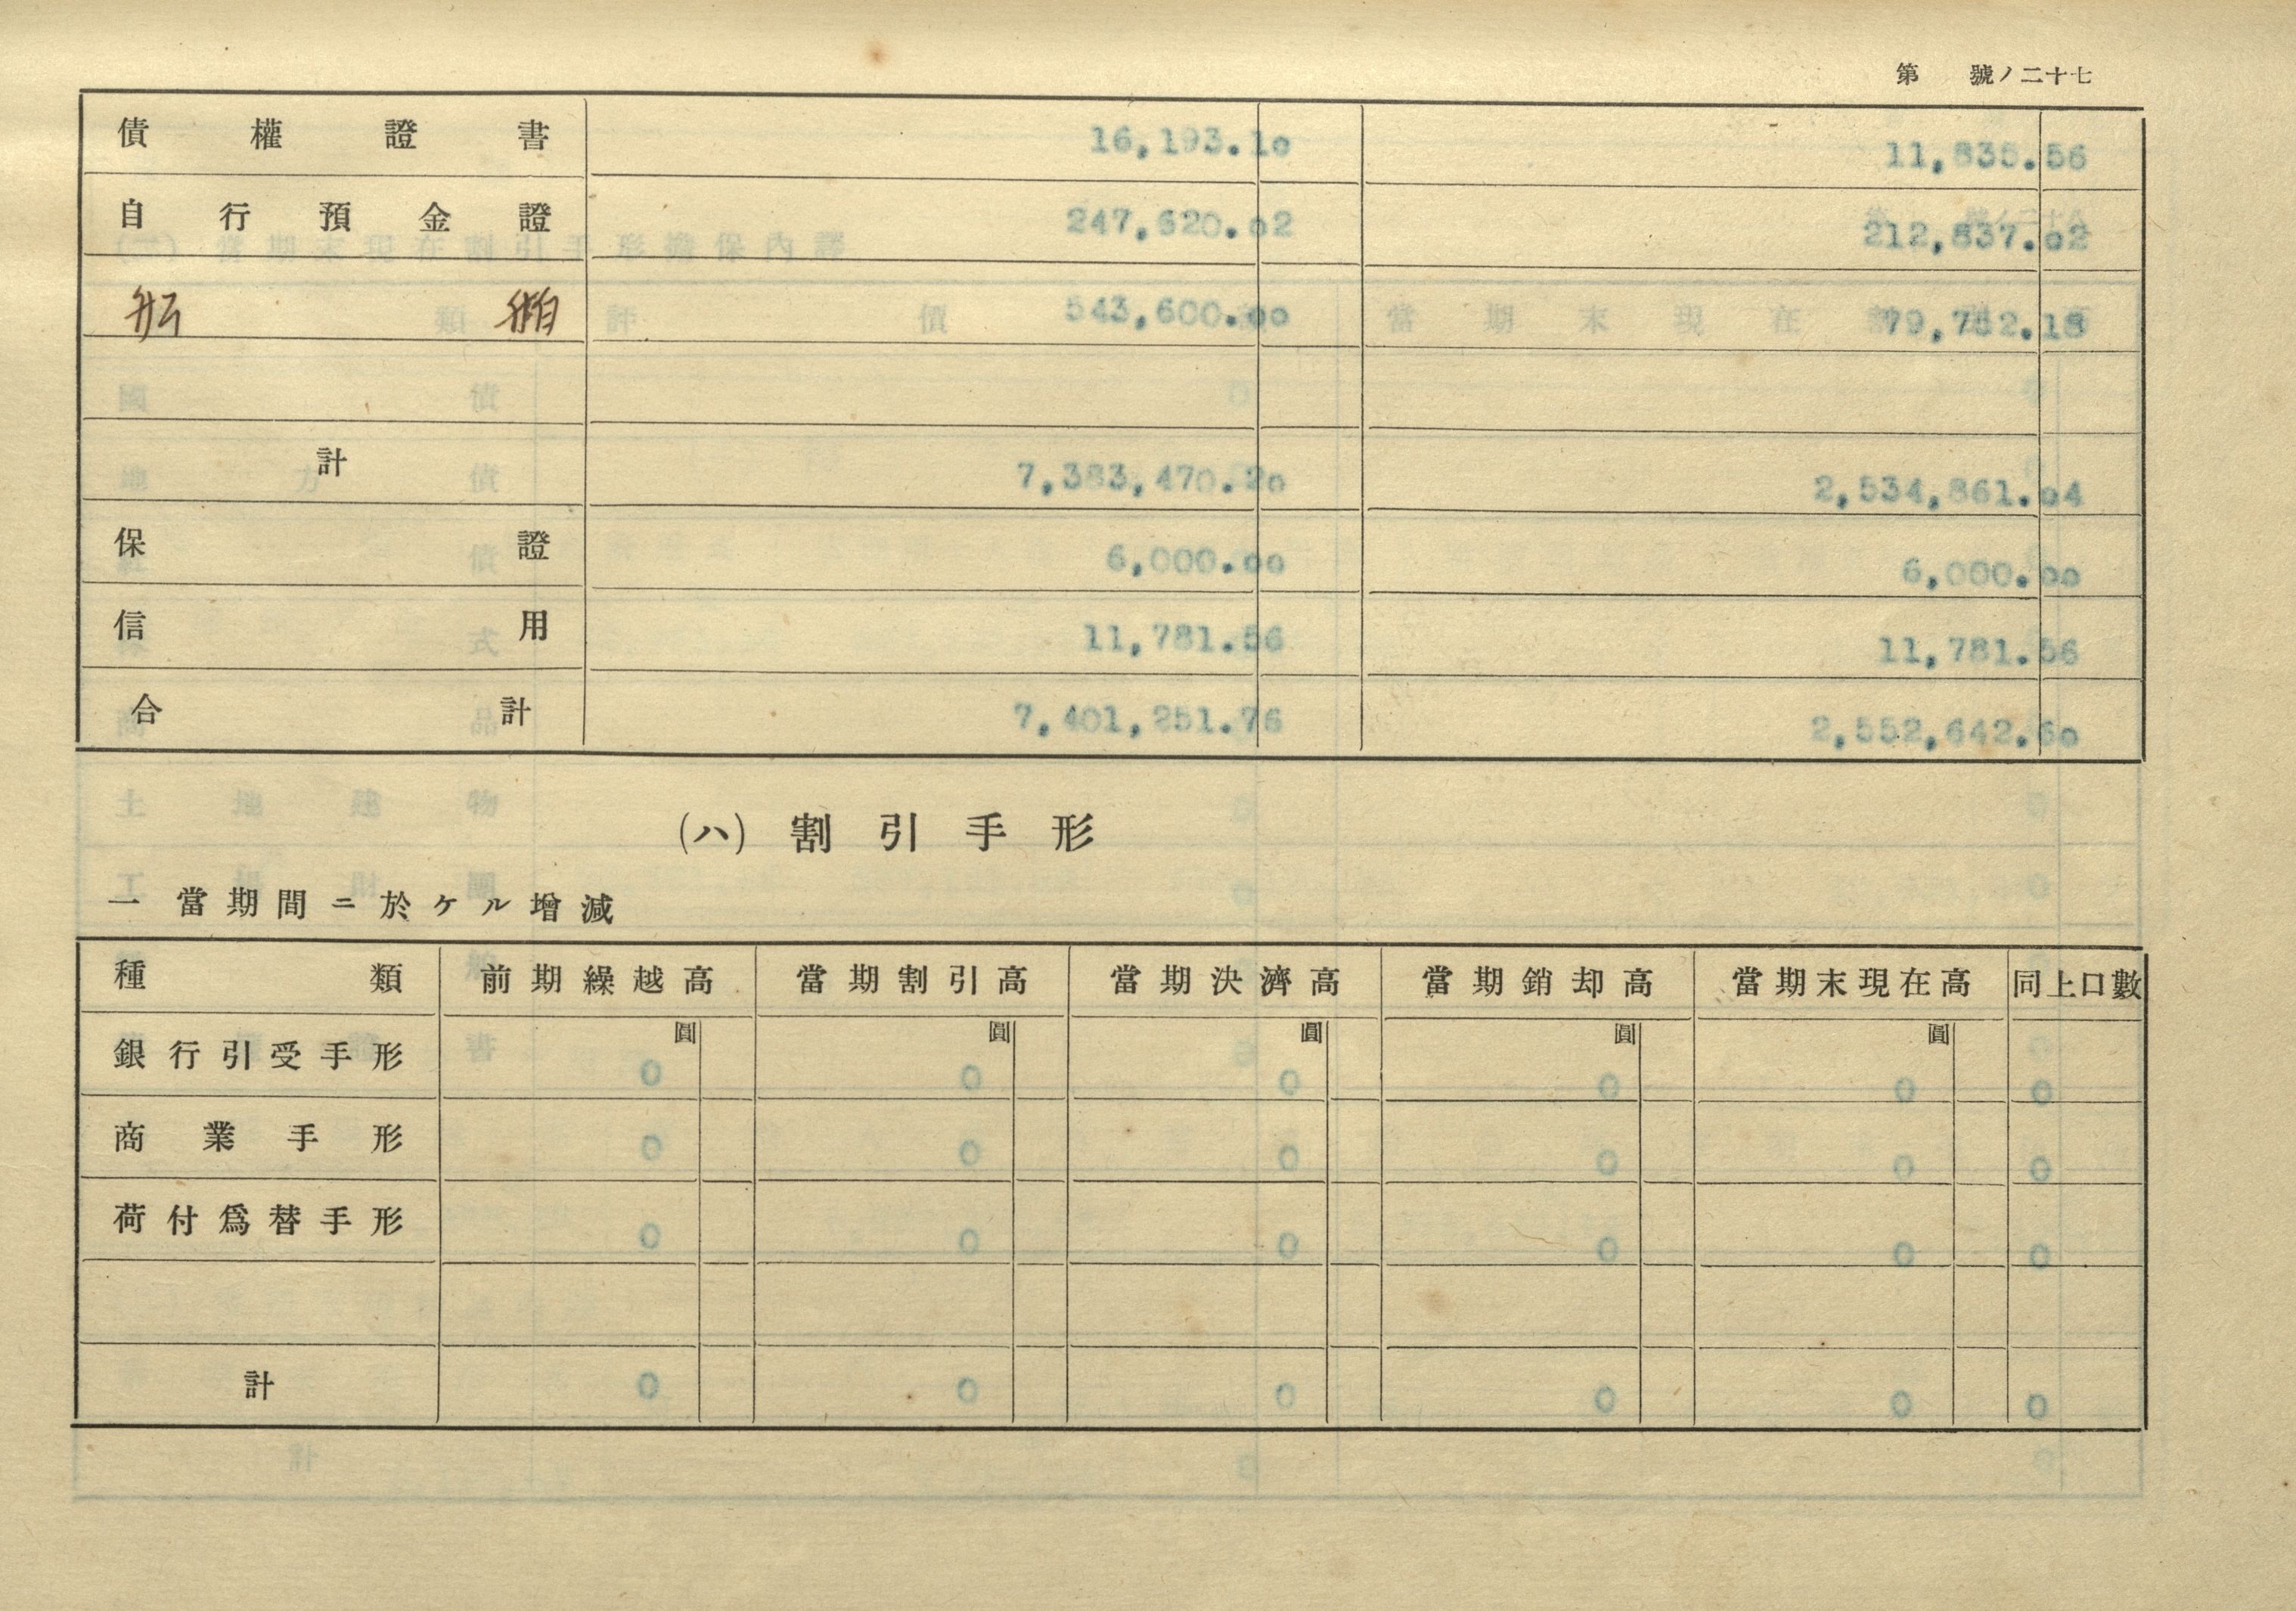 第 號ノ二十七
債權證書 16,193.10 11,835.56
自行預金證 247,620.02 212,837.02
船舶 543,600.00 79,752.18
計 7,383,470.20 2,534,861.04
保證 6,000.00 6,000.00
信用 11,781.56 11,781.56
合計 7,401,251.76 2,552,642.60
(ハ) 割引手形
一 當期間ニ於ケル增減
種類 前期繰越高 當期割引高 當期決濟高 當期銷却高 當期末現在高 同上口數
圓 圓 圓 圓 圓
銀行引受手形 0 0 0 0 0 0
商業手形 0 0 0 0 0 0
荷付爲替手形 0 0 0 0 0 0
計 0 0 0 0 0 0